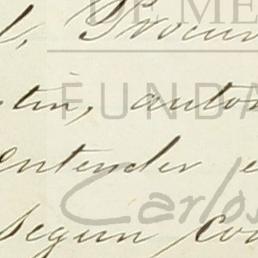 l, Procur
tin, autor
entender e
Segun Co
DE ME
FUNDA
Carlos